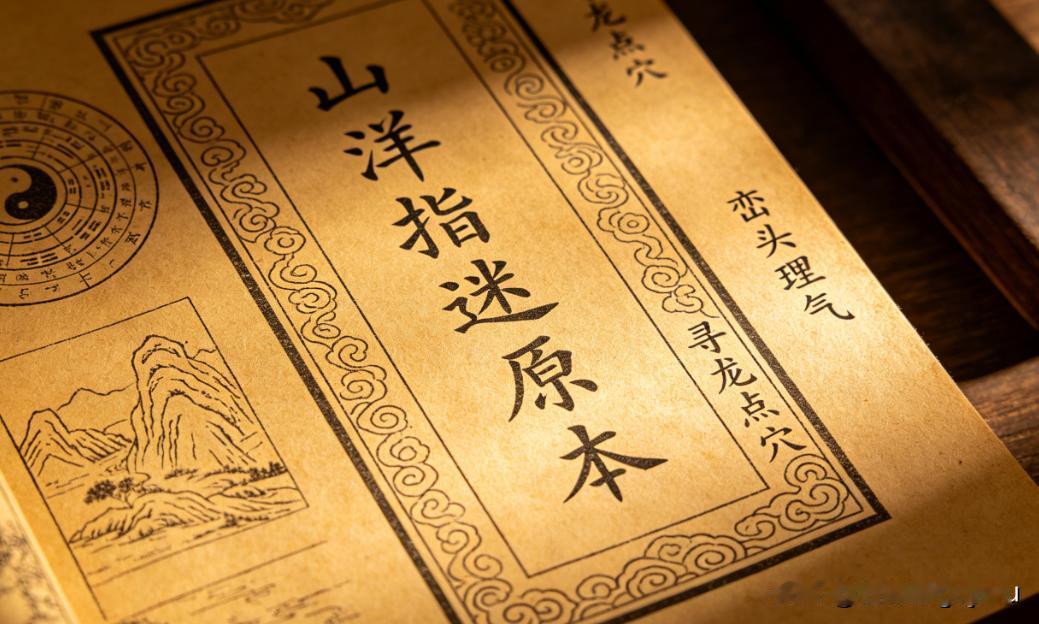 山洋指迷原本
龙点穴
峦头理气
寻龙点穴